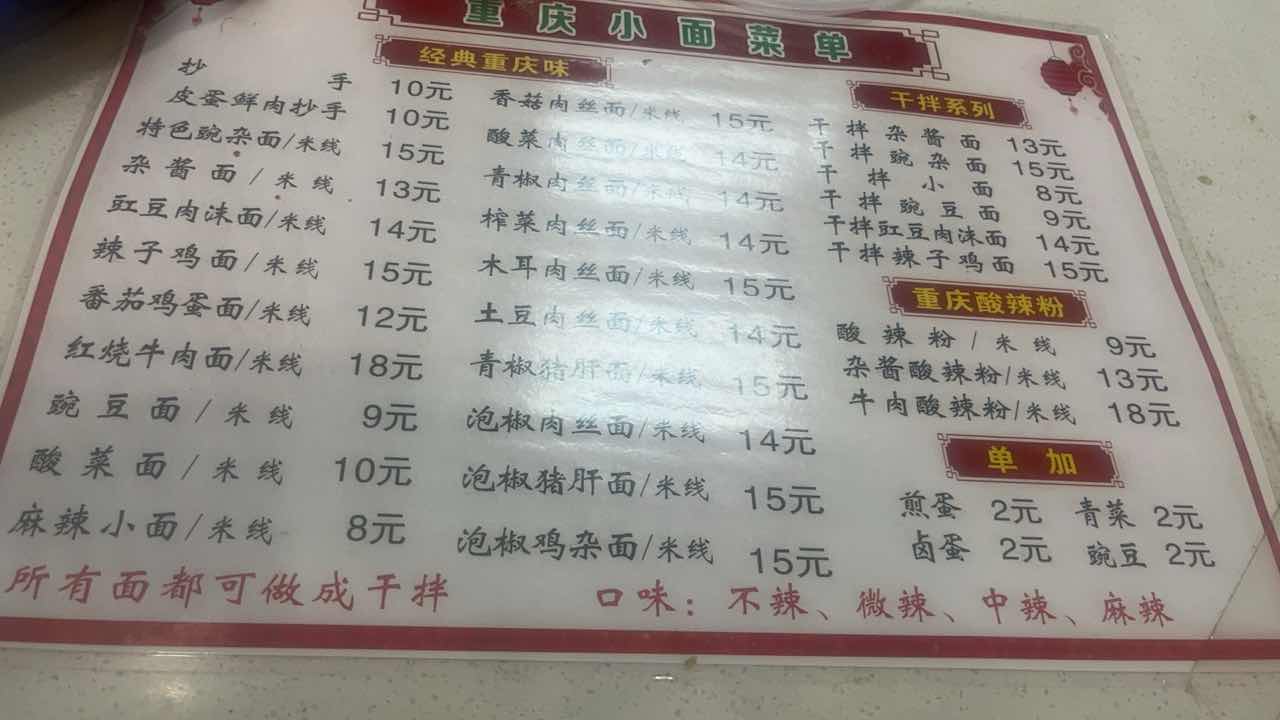 重庆小面菜单
经典重庆味
抄手 10元
皮蛋鲜肉抄手 10元
特色豌杂面/米线 15元
杂酱面/米线 13元
豇豆肉沫面/米线 14元
辣子鸡面/米线 15元
番茄鸡蛋面/米线 12元
红烧牛肉面/米线 18元
豌豆面/米线 9元
酸菜面/米线 10元
麻辣小面/米线 8元
香菇肉丝面/米线 15元
酸菜肉丝面/米线 14元
青椒肉丝面/米线 14元
榨菜肉丝面/米线 14元
木耳肉丝面/米线 15元
土豆肉丝面/米线 14元
青椒猪肝面/米线 15元
泡椒肉丝面/米线 14元
泡椒猪肝面/米线 15元
泡椒鸡杂面/米线 15元
干拌系列
干拌杂酱面 13元
干拌豌杂面 15元
干拌小面 8元
干拌豌豆面 9元
干拌豇豆肉沫面 14元
干拌辣子鸡面 15元
重庆酸辣粉
酸辣粉/米线 9元
杂酱酸辣粉/米线 13元
牛肉酸辣粉/米线 18元
单加
煎蛋 2元 青菜 2元
卤蛋 2元 豌豆 2元
所有面都可做成干拌
口味：不辣、微辣、中辣、麻辣